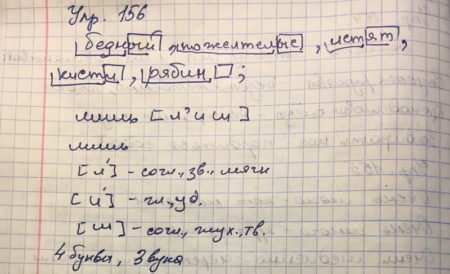 Упр. 156
бедный, пожелтелые, истят,
кисти, рябин;
лишь [л'иш]
лишь
[л'] - согл., зв., мягк
[и'] - гл., уд.
[ш] - согл., глух., тв.
4 буквы, 3 звука